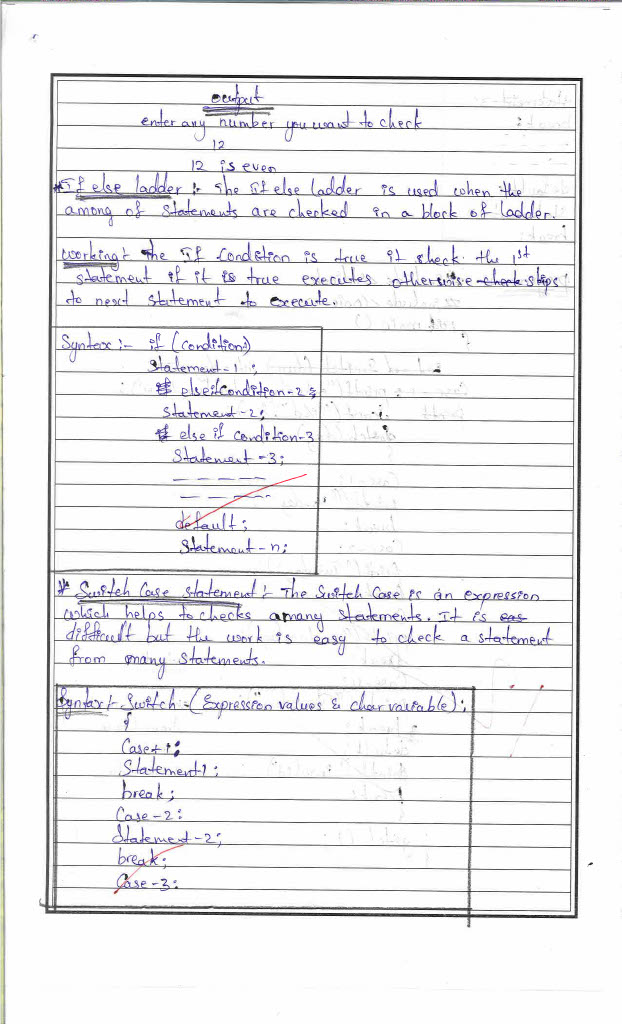 output
enter any number you want to check
12
12 is even
* If else ladder :- The if else ladder is used when the
among of statements are checked in a block of ladder.
working :- The if condition is true it sheck the 1st
statement if it is true executes otherswise check skips
to next statement to execute.
Syntax :- if (condition)
Statement-1 ;
else if condition-2 ;
Statement-2;
else if condition-3
Statement -3;
default ;
Statement-n;
* Switch Case statement :- The Switch Case is an expression
which helps to checks amany Statements. It is eas
difficult but the work is easy to check a statement
from many statements.
Syntax :- Switch -(Expression values & char variable) ;
{
Case-1 :
Statement1 ;
break ;
Case -2 :
Statement -2;
break ;
Case -3 :